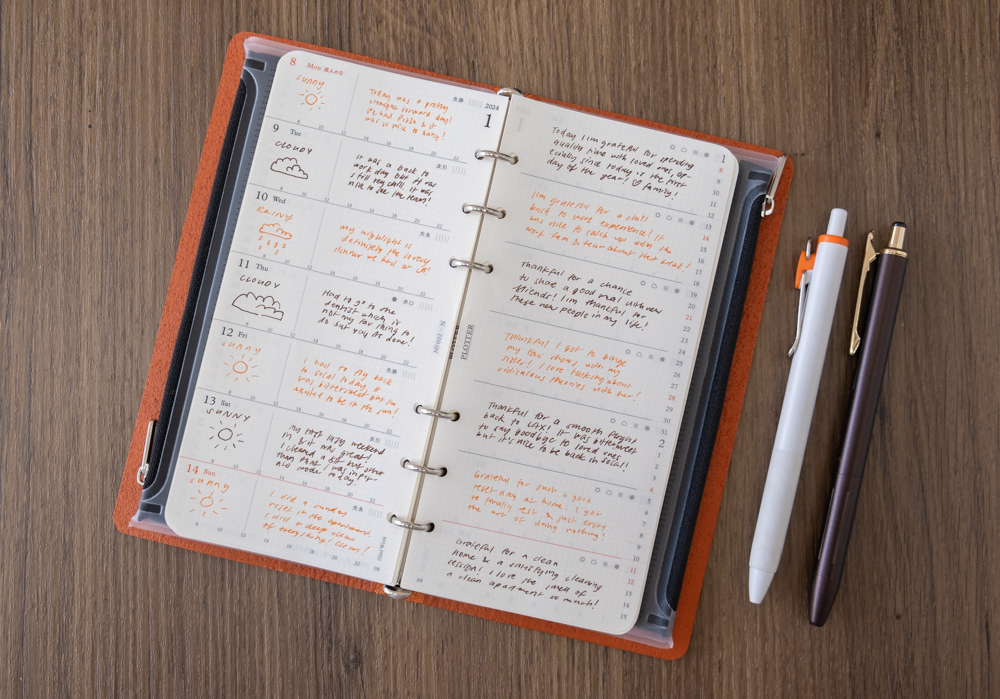 8 Mon 成人の日
SUNNY
Today was a pretty
straight forward day!
was nice to hang!
先勝
2024
1
9 Tue
CLOUDY
it was a back to
work day but it was
still very chill. it was
nice to see the team!
友引
10 Wed
RAINY
my highlight is
definitely the lovely
dinner we had at
先負
11 Thu
CLOUDY
Had to go to the
dentist which is
not my fav thing to
do but yay its done!
12 Fri
sunny
i had to fly back
to socal today. it
was bittersweet but im
excited to be in the sun!
13 Sat
SUNNY
my first lazy weekend
in a bit was great!
I cleaned a bit but other
than that I was in pet
and mode today.
14 Sun
sunny
i did a sunday
reset in the apartment.
i did a deep clean
of everything! clean!
PLOTTER
Today I im grateful for spending
quality time with loved ones, esp-
ecially since today is the first
day of the year! ♡ family!
I im grateful for a chill
back to work experience! it
was nice to catch up with the
work fam & hear about their break!
Thankful for a chance
to share a good meal with new
friends! I im thankful for
these new people in my life!
Thankful I got to binge
my fav shows with my
sister! I love talking about
ridiculous theories with her!
Thankful for a smooth flight
back to LAX! it was bittersweet
to say goodbye to loved ones
but it's nice to be back in socal!
Grateful for such a good
reset day at home. I got
to finally rest & just enjoy
the art of doing nothing!
Grateful for a clean
home & a satisfying cleaning
session! I love the smell of
a clean apartment so much!